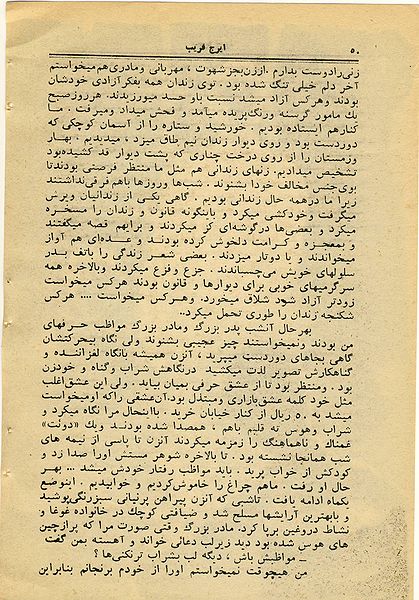 ۵۰ ایرج قریب
زنی‌را دوست بدارم. از زن بجز شهوت، مهربانی و مادری هم میخواستم
آخر دلم خیلی تنگ شده بود. توی زندان همه بفکر آزادی خودشان
بودند و هرکس آزاد میشد نسبت باو حسد میورزیدند. هر روز صبح
یك مامور گرسنه و رنگ‌پریده میآمد و فحش میداد و میرفت. ما
کنار هم ایستاده بودیم. خورشید و ستاره را از آسمان کوچکی که
دوردست بود و روی دیوار زندان نیم طاق میزد، میدیدیم. بهار
و زمستان را از روی درخت چناری که پشت دیوار قد کشیده بود
تشخیص میدادیم. زنهای زندانی هم مثل ما منتظر فرصتی بودند تا
بوی جنس مخالف خود را بشنوند. شب‌ها و روزها باهم فرقی نداشتند
زیرا ما در همه حال زندانی بودیم. گاهی یکی از زندانیان ویرش
میگرفت و خودکشی میکرد و باینگونه قانون و زندان را مسخره
میکرد و بعضی‌ها در گوشه‌ای کز میکردند و برایهم قصه میگفتند
و بمعجزه و کرامت دلخوش کرده بودند و عده‌ای هم آواز
میخواندند و با دوتار میزدند. بعضی شعر زندگی را باتف بدر
سلولهای خویش می‌چسباندند. جزع و فزع میکردند و بالاخره همه
سرگرمیهای خوبی برای دیوارها و قانون بودند هرکس میخواست
زودتر آزاد شود شلاق میخورد. و هرکس میخواست .... هرکس
شکنجه زندان را طوری تحمل میکرد..
بهرحال آنشب پدر بزرگ و مادر بزرگ مواظب حرفهای
من بودند و نمیخواستند چیز عجیبی بشنوند ولی نگاه بیحرکتشان
گاهی بجاهای دوردست میپرید، آنزن همیشه بانگاه لغزاننده و
گناهکارش تصویر لذت میکشید در نگاهش شراب وگناه و خودزن
بود. و منتظر بود تا از عشق حرفی بمیان بیاید. ولی این عشق اغلب
مثل خود کلمه عشق‌بازاری و مبتذل بود. آن عشقی را که او میخواست
میشد به ۵۰ ریال از کنار خیابان خرید. با اینحال مرا نگاه میکرد و
شراب وهوس ته قلبم باهم، همصدا شده بودند و یك «دوئت»
غمناك و ناهماهنگ را زمزمه میکردند آنزن تا پاسی از نیمه های
شب همانجا نشسته بود. تا بالاخره شوهر مستش اورا صدا زد و
کودکش از خواب پرید. باید مواظب رفتار خودش میشد... بهر
حال او رفت. ماهم چراغ را خاموش کردیم و خوابیدیم. اینوضع
یکماه ادامه یافت. تاشبی که آنزن پیراهن پرنیانی سبزرنگی پوشید
و با بهترین آرایشها مسلح شد و ضیافتی کوچك در خانواده غوغا و
نشاط دروغین برپا کرد. مادر بزرگ وقتی صورت مرا که پر از چین
های هوس شده بود دید زیرلب دعائی خواند و آهسته بمن گفت
ـ مواظبش باش، دیگه لب بشراب ترنکنی‌ها؟
من هیچوقت نمیخواستم اورا از خودم برنجانم بنابراین